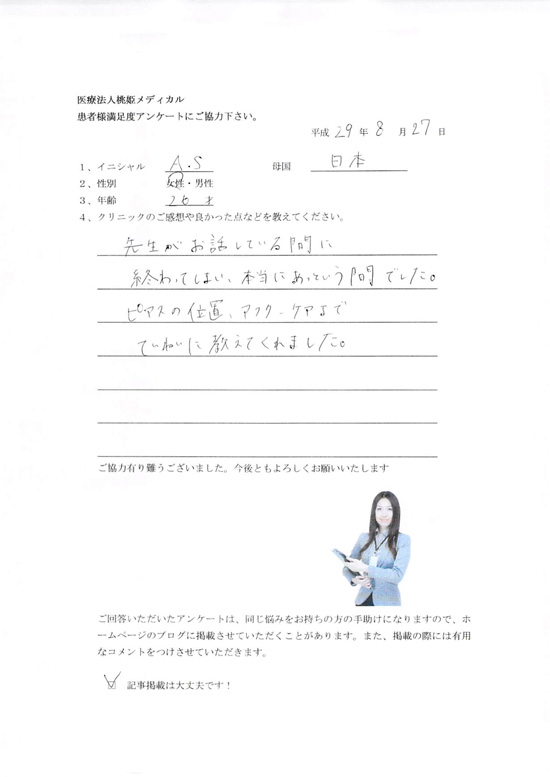 医療法人桃姫メディカル
患者様満足度アンケートにご協力下さい。
平成 29 年 8 月 27 日
1、イニシャル A.S 母国 日本
2、性別 女性・男性
3、年齢 26 才
4、クリニックのご感想や良かった点などを教えてください。
先生がお話している間に
終わってしまい、本当にあっという間でした。
ピアスの位置、アフターケアまで
ていねいに教えてくれました。
ご協力有り難うございました。今後ともよろしくお願いいたします
ご回答いただいたアンケートは、同じ悩みをお持ちの方の手助けになりますので、ホ
ームページのブログに掲載させていただくことがあります。また、掲載の際には有用
なコメントをつけさせていただきます。
記事掲載は大丈夫です！